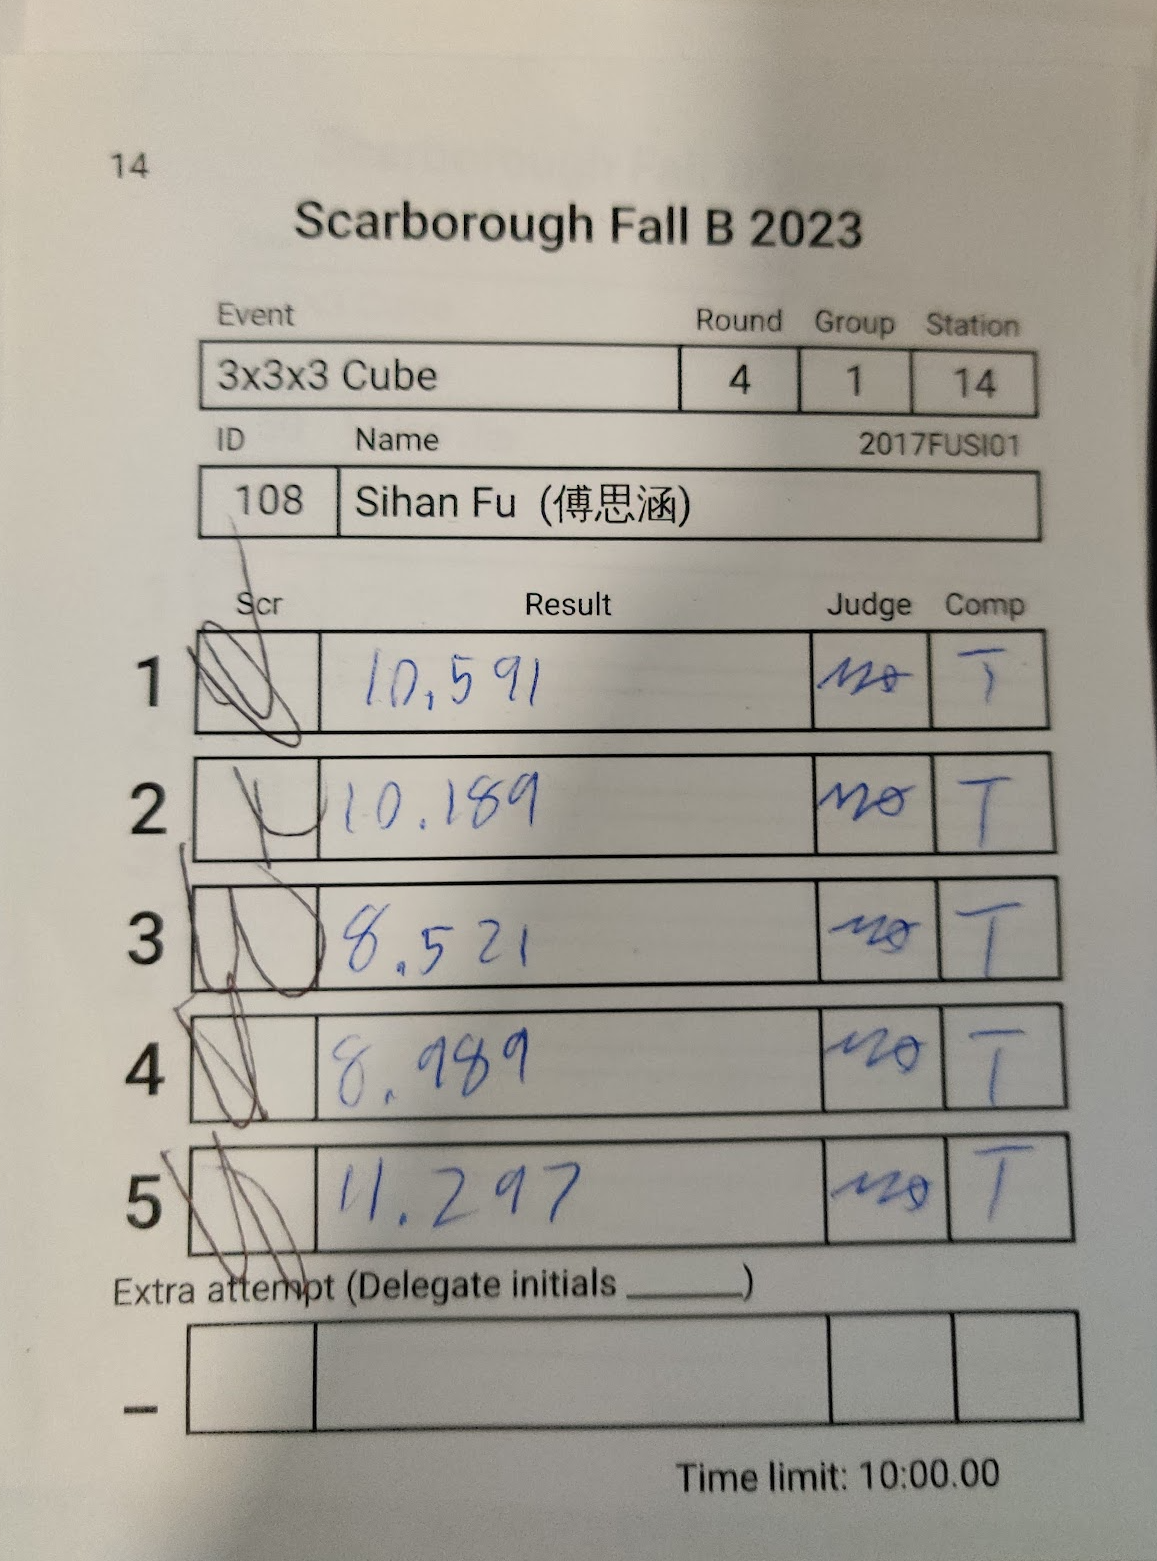 14
Scarborough Fall B 2023
Event Round Group Station
3x3x3 Cube 4 1 14
ID Name 2017FUSI01
108 Sihan Fu (傅思涵)
Scr Result Judge Comp
1 10.591 T
2 10.189 T
3 8.521 T
4 8.989 T
5 11.297 T
Extra attempt (Delegate initials ______)
_
Time limit: 10:00.00